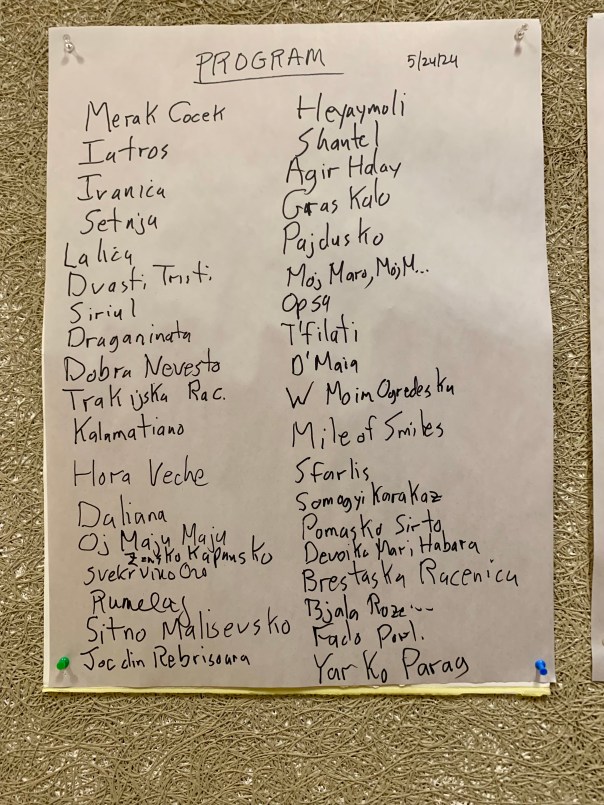 PROGRAM 5/24/24
Merak Cocek
Iatros
Ivanica
Setnja
Lalica
Dvasti Tristi
Siriul
Draganinata
Dobra Nevesto
Trakijska Rac.
Kalamatiano
Hora Veche
Daliana
Oj Maju Maju
Žensko Kapansko
Svekrvino Oro
Rumelaj
Sitno Malisevsko
Joc din Rebrisoara
Heyaymoli
Shantel
Agir Halay
Gras Kalo
Pajdusko
Moj Maro, Moj M...
Opsa
T'filati
D'Maia
W Moim Ogredesku
Mile of Smiles
Sfarlis
Somogyi Karakaz
Pomasko Sirto
Devoiko Mari Habava
Brestaska Racenica
Bjala Roza...
Fado Port.
Yar Ko Parag